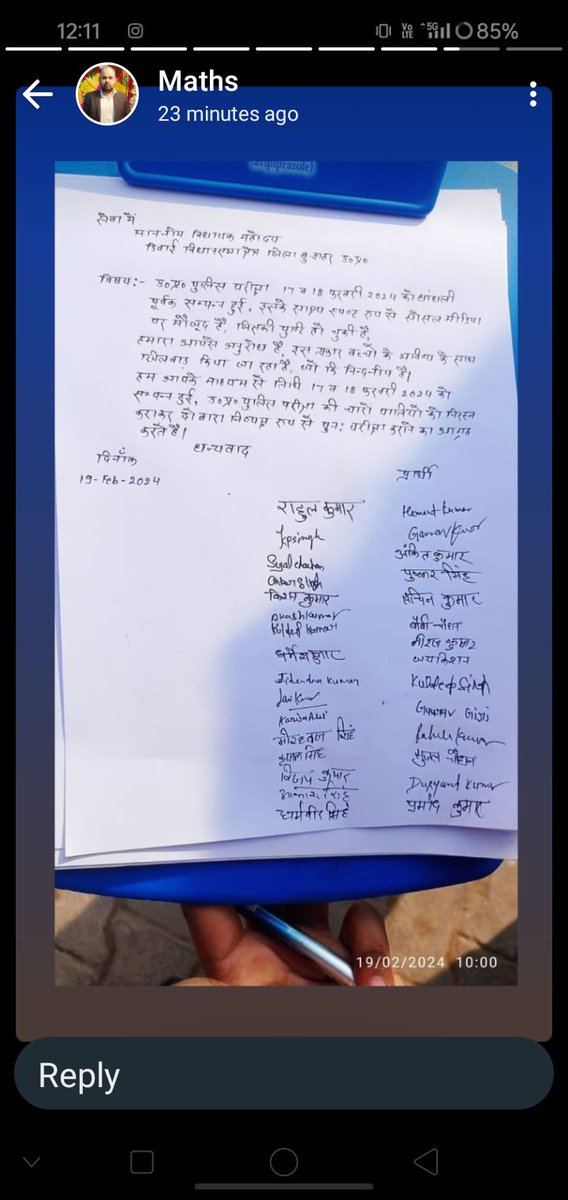 12:11
Vo LTE 5G 85%
Maths
23 minutes ago
(aripiprazole)
सेवा में
माननीय विधायक महोदय
डिबाई विधानसभा क्षेत्र जिला बु०शहर उ०प्र०
विषय:- उ०प्र० पुलिस परीक्षा 17 व 18 फरवरी 2024 को धांधली
पूर्वक सम्पन्न हुई, इसके साक्ष्य स्पष्ट रूप से सोसल मीडिया
पर मौजूद है, जिसकी पुष्टी हो चुकी है,
हमारा आपसे अनुरोध है, इस प्रकार बच्चों के भविष्य के साथ
खिलवाड़ किया जा रहा है, जो कि निन्दनीय है।
हम आपके माध्यम से तिथी 17 व 18 फरवरी 2024 को
सम्पन्न हुई, उ०प्र० पुलिस परीक्षा की चारो पालियों को निरस्त
कराकर दोबारा निष्पक्ष रूप से पुन: परीक्षा कराने का आग्रह
करते है।
धन्यवाद
दिनाँक
19-Feb-2024
प्रार्थी
राहुल कुमार Hemant Kumar
Jpsingh Gaurav
अंकित कुमार
पुष्कर सिंह
किशन कुमार सचिन कुमार
Akash kumar
Kuldeep Kumar
नीरज कुमार
धर्मेश कुमार जयकिशन
Jitendra Kumar Kuldeep Singh
Gaurav Giri
सिंह Rahul Kumar
सिंह सुजल चौहान
विजय कुमार Dushyant Kumar
सिंह
धर्मवीर सिंह प्रमोद कुमार
19/02/2024 10:00
Reply